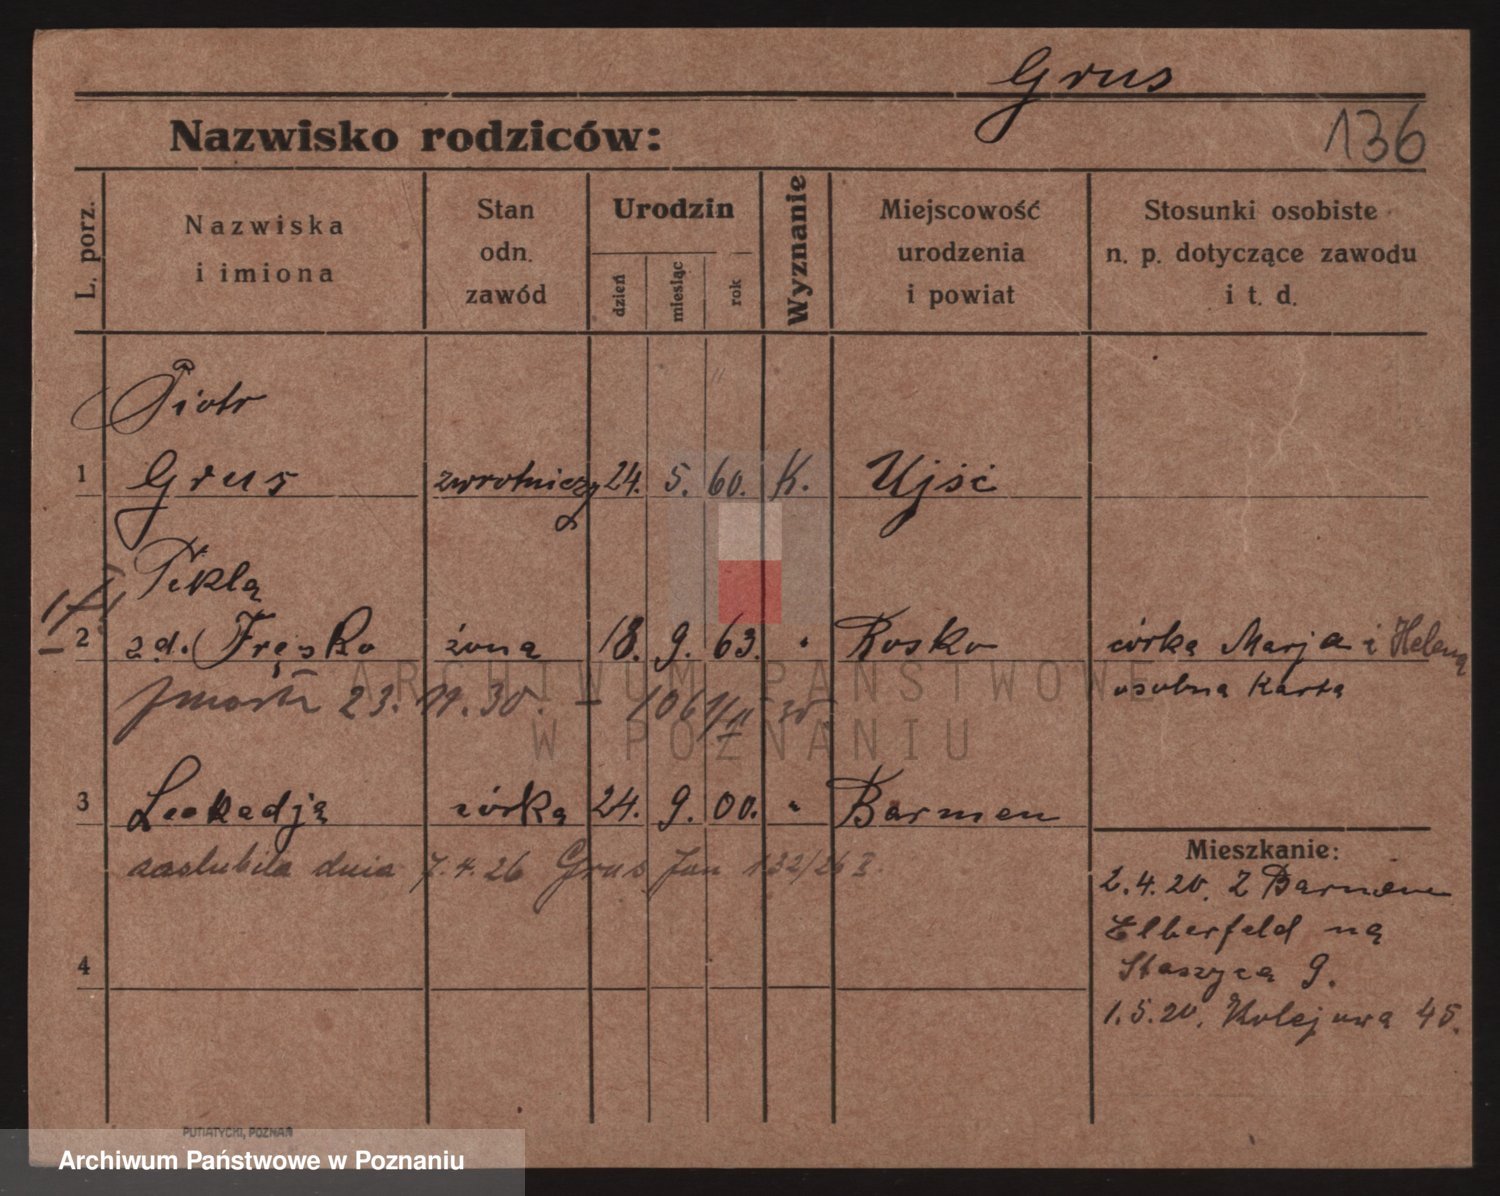 Grus
Nazwisko rodziców:
136
L. porz.
Nazwiska
i imiona
Stan
odn.
zawód
Urodzin
dzień
miesiąc
rok
Wyznanie
Miejscowość
urodzenia
i powiat
Stosunki osobiste
n. p. dotyczące zawodu
i t. d.
Piotr
1 Grus zwrotniczy 24. 5. 60. K. Ujść
Tekla
2 zd. Fręśko żona 18. 9. 63. " Rosko córka Marja i Helena
osobna karta
zmarła 23. 11. 30. - 1061/11 30
ARCHIWUM PAŃSTWOWE
W POZNANIU
3 Leokadja córka 24. 9. 00. " Barmen
zaślubiła dnia 7.4.26 Grus Jan 132/26 I.
4
Mieszkanie:
2.4.20. Z Barmen
Elberfeld na
Staszyca 9.
1.5.20. Kolejowa 45.
PUTIATYCKI, POZNAŃ
Archiwum Państwowe w Poznaniu